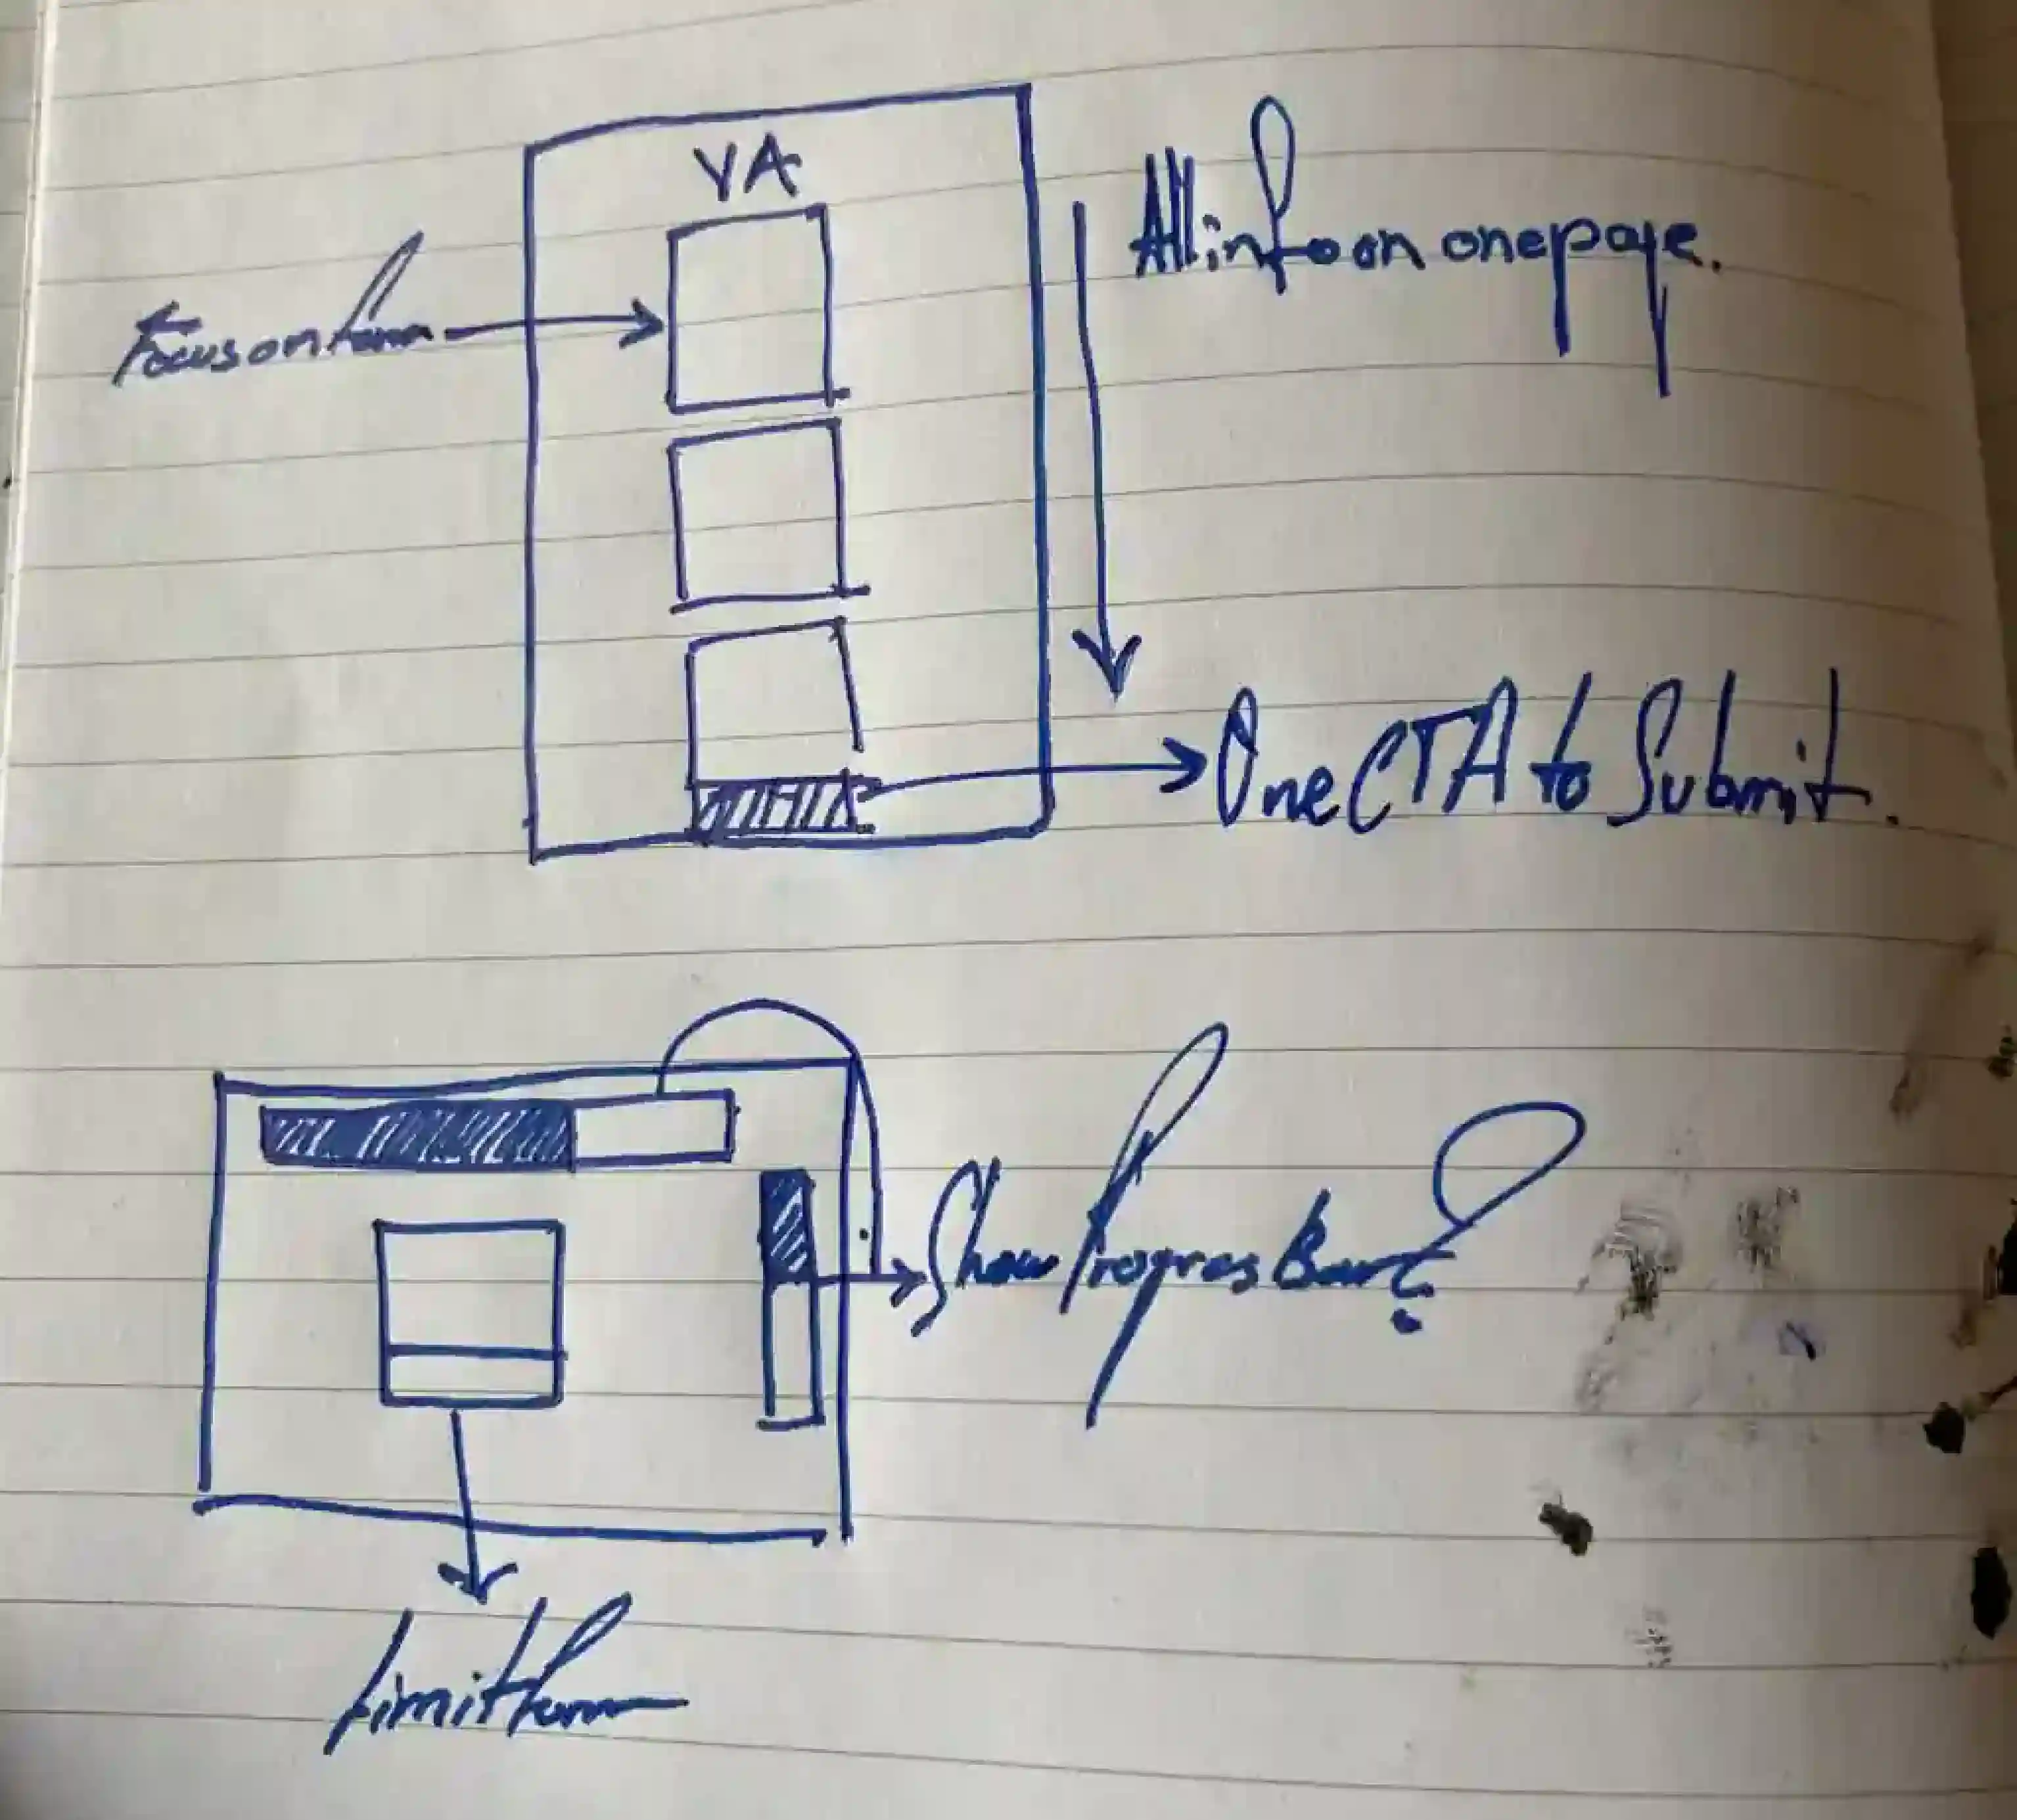 VA
All info on one page.
Focus on form
One CTA to Submit.
Show Progres Bar?
Limit form